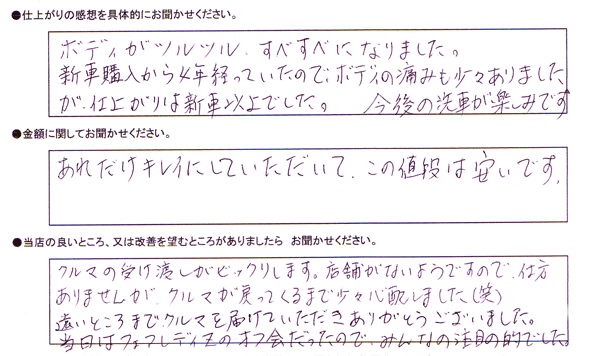 ●仕上がりの感想を具体的にお聞かせください。
ボディがツルツル、すべすべになりました。
新車購入から4年経っていたので、ボディの痛みも少々ありました
が、仕上がりは新車以上でした。 今後の洗車が楽しみです
●金額に関してお聞かせください。
あれだけキレイにしていただいて、この値段は安いです。
●当店の良いところ、又は改善を望むところがありましたら お聞かせください。
クルマの受け渡しがビックリします。店舗がないようですので、仕方
ありませんが、クルマが戻ってくるまで少々心配しました(笑)
遠いところまでクルマを届けていただきありがとうございました。
当日はフェアレディZのオフ会だったので、みんなの注目の的でした。